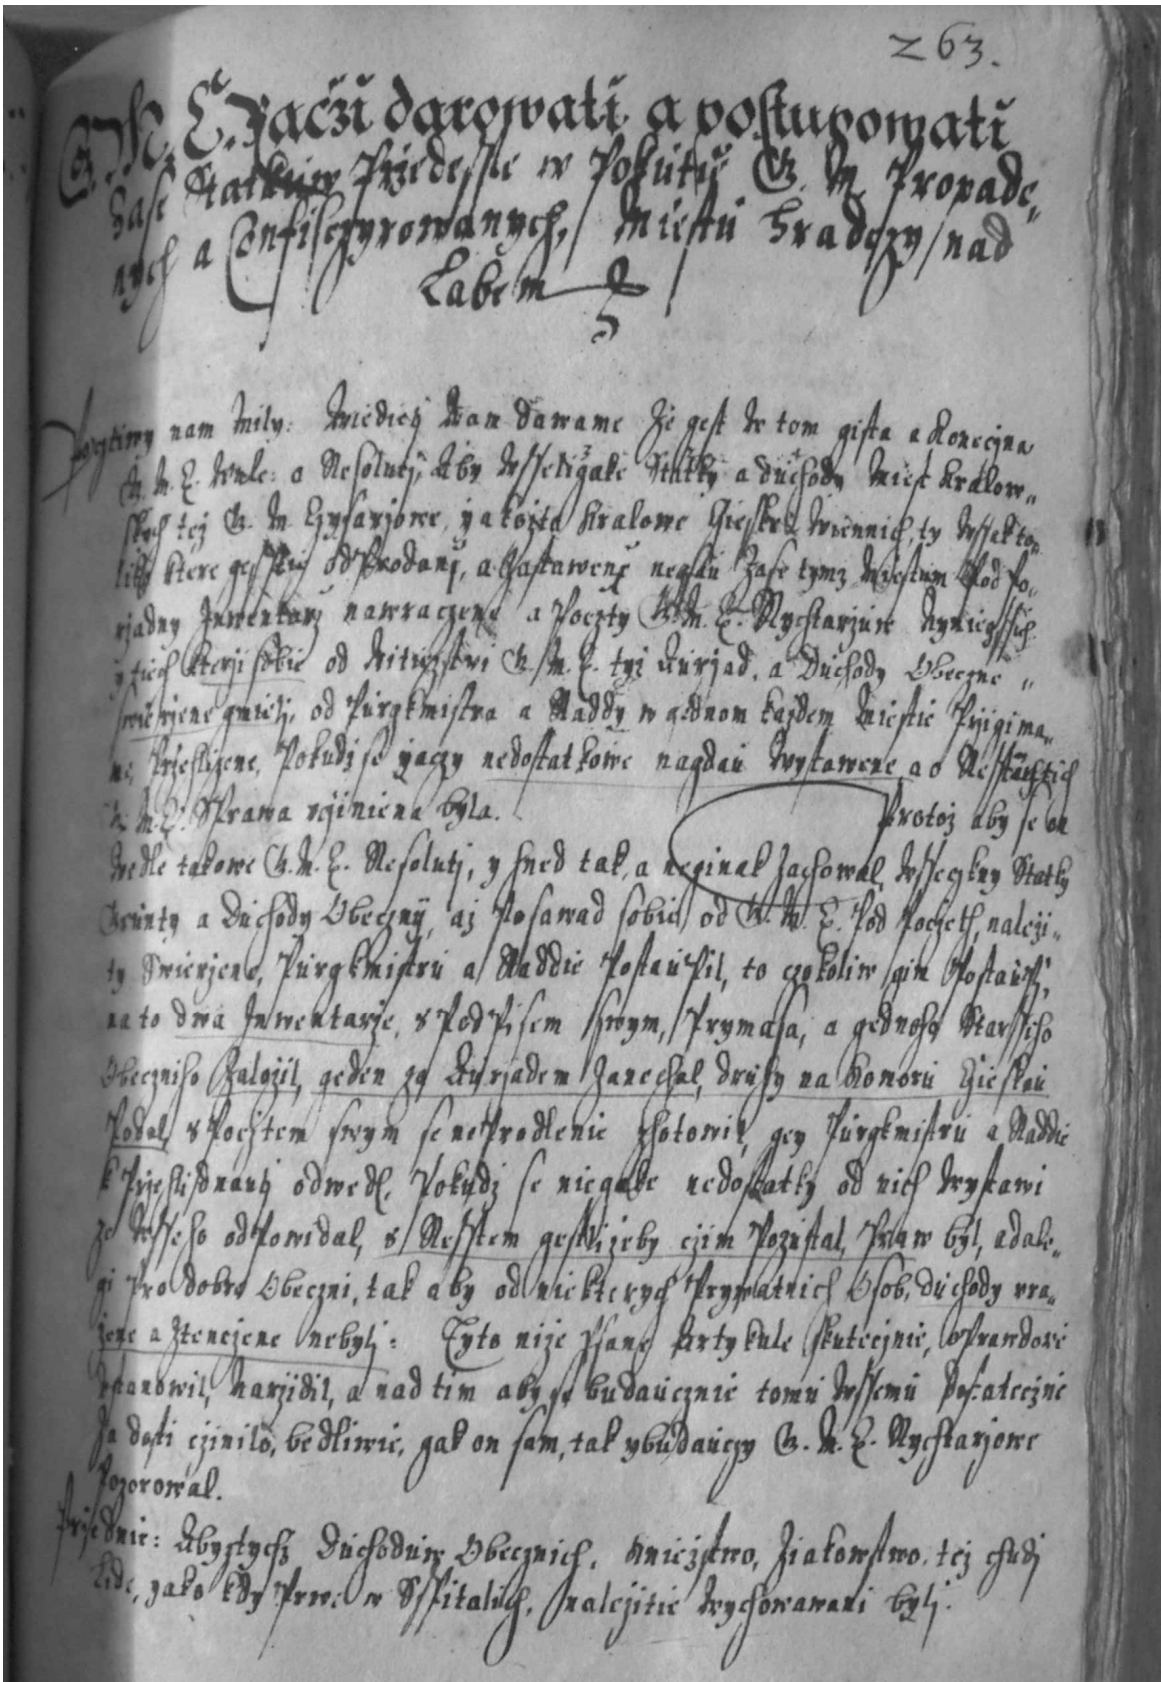 263.
G. M. C. Raczi darowati a postupowati
Zase Statkuw Przedessle w Pokutu G. M. Propade„
nych a Confiscyrowanych, Miestu Hradczy nad
Labem
Pocztiwy nam Mily: Wiedieti Wam Dawame Že gest W tom gista a Konecžna
G. M. C. Wule: a Resolutj, Aby Wsseligake Statky a Duchody Miest Kralow„
skych též G. M. Czysarzowe, yakožto Kralowe Cžieske Wiennich, ty Wssak to„
liko ktere gesstie odProdany, a Zastaweny negsau Zase tymz Miestum Pod Po„
rzadny Inwentarz nawraczene a Poczty G. M. C. Rychtarzuw Nyniegssich
y tiech kterzi sobie od Witiezstwi G. M. C. tyž Aurzad, a Duchody Obeczne „
swierzene gmieli, od Purgkmistra a Raddy w gednom každem Miestie Przigima„
ne, Przeslissene, Pokudž se yaczy nedostatkowe nagdau Wystawene a o Resstantich
G. M. C. Sprawa vcžiniena byla. Protož aby se on
Wedle takowe G. M. C. Resolutj, y hned tak, a neginak Zachowal, Wsseczkny Statky
Grunty a Duchody Obeczny, až Posawad sobie od G. M. C. Pod Pocžeth, naleži„
ty Swierzene, Purgkmistru a Raddie Postaupil, to czokoliw gim Postaupi,
na to dwa Inwentarže, s PodPisem swym, Prymasa, a gednoho Starssiho
Obeczniho Založil, geden za Aurzadem Zanechal, druhy na Komoru Cžieskau
Podal, s Pocžtem swym se neProdlenie zhotowil, gey Purgkmistru a Raddie
k Przehlidnuti odwedl, Pokudž se niegake nedostatky od nich Wystawi
ze Wsseho odPowidal, s Resstem gestližeby cžim Pozustal, Praw byl, a dale„
gi Pro dobre Obeczni, tak aby od niekterych Prywatnich Osob, Duchody vra„
žene a Ztencžene nebyli: Tyto niže Psane Artykule skutecžnie, oPrawdowie
vstanowil, narzidil, a nad tim aby se budaucznie tomu Wssemu Postatecžnie
Za dosti cžinilo, bedliwie, gak on sam, tak y budauczy G. M. C. Rychtarzowe
Pozorowal.
Przednie: Abyztychž Duchoduw Obecznich, Knežstwo, Žiakowstwo, též chudi
Lide, yako kdy Prwe w SsPitalich, naležitie Wychowawani byli.